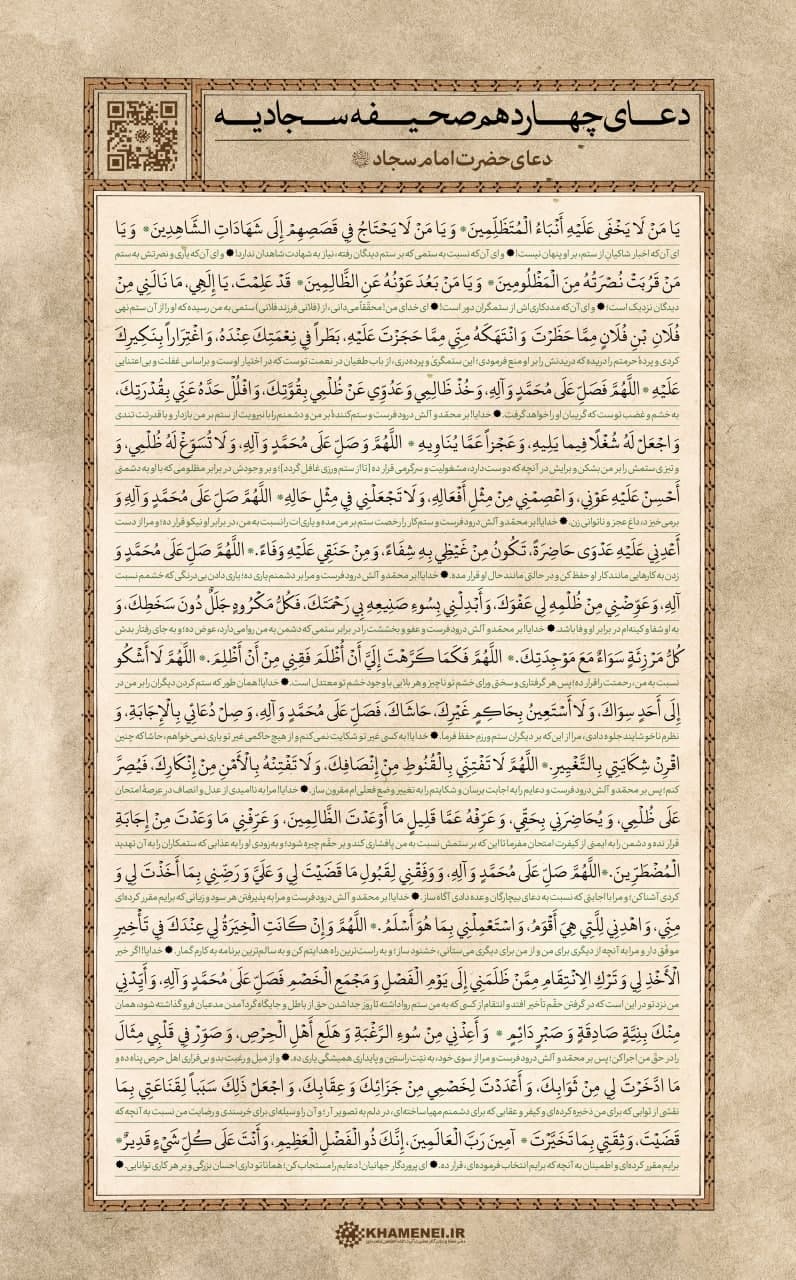 دعای چهاردهم صحیفه سجادیه
دعای حضرت امام سجاد
يَا مَنْ لَا يَخْفَى عَلَيْهِ أَنْبَاءُ الْمُتَظَلِّمِينَ * وَ يَا مَنْ لَا يَحْتَاجُ فِي قَصَصِهِمْ إِلَى شَهَادَاتِ الشَّاهِدِينَ * وَ يَا
ای آن‌که اخبار شاکیان از ستم، بر او پنهان نیست! ● و ای آن‌که نسبت به ستمی که بر ستم دیدگان رفته، نیاز به شهادت شاهدان ندارد! ● و ای آن‌که یاری و نصرتش به ستم
مَنْ قَرُبَتْ نُصْرَتُهُ مِنَ الْمَظْلُومِينَ * وَ يَا مَنْ بَعُدَ عَوْنُهُ عَنِ الظَّالِمِينَ * قَدْ عَلِمْتَ، يَا إِلَهِي، مَا نَالَنِي مِنْ
دیدگان نزدیک است! ● و ای آن‌که مددکاری‌اش از ستمگران دور است! ● ای خدای من! محققاً می‌دانی، از (فلانی فرزند فلانی) ستمی به من رسیده که او را از آن ستم نهی
فُلَانِ بْنِ فُلَانٍ مِمَّا حَظَرْتَ وَ انْتَهَكَهُ مِنِّي مِمَّا حَجَزْتَ عَلَيْهِ، بَطَراً فِي نِعْمَتِكَ عِنْدَهُ، وَ اغْتِرَاراً بِنَكِيرِكَ
کردی و پردۀ حرمتم را دریده که دریدنش را بر او منع فرمودی؛ این ستمگری و پرده‌دری، از باب طغیان در نعمت توست که در اختیار اوست و براساس غفلت و بی‌اعتنایی
عَلَيْهِ * اللَّهُمَّ فَصَلِّ عَلَى مُحَمَّدٍ وَ آلِهِ، وَ خُذْ ظَالِمِي وَ عَدُوِّي عَنْ ظُلْمِي بِقُوَّتِكَ، وَ افْلُلْ حَدَّهُ عَنِّي بِقُدْرَتِكَ،
به خشم و غضب توست که گریبان او را خواهد گرفت. ● خدایا! بر محمّد و آلش درود فرست و ستم‌کنندۀ بر من و دشمنم را با نیرویت از ستم بر من بازدار و با قدرتت تندی
وَ اجْعَلْ لَهُ شُغْلًا فِيما يَلِيهِ، وَ عَجْزاً عَمَّا يُنَاوِيهِ * اللَّهُمَّ وَ صَلِّ عَلَى مُحَمَّدٍ وَ آلِهِ، وَ لَا تُسَوِّغْ لَهُ ظُلْمِي، وَ
و تیزی ستمش را بر من بشکن و برایش در آنچه که دوست دارد، مشغولیت و سرگرمی قرار ده [تا از ستم ورزی غافل گردد]؛ و بر وجودش در برابر مظلومی که با او به دشمنی
أَحْسِنْ عَلَيْهِ عَوْنِي، وَ اعْصِمْنِي مِنْ مِثْلِ أَفْعَالِهِ، وَ لَا تَجْعَلْنِي فِي مِثْلِ حَالِهِ * اللَّهُمَّ صَلِّ عَلَى مُحَمَّدٍ وَ آلِهِ وَ
برمی‌خیزد، داغ عجز و ناتوانی زن. ● خدایا! بر محمّد و آلش درود فرست و ستم‌کار را رخصت ستم بر من مده و یاری‌ات را نسبت به من، در برابر او نیکو قرار ده؛ و مرا از دست
أَعْدِنِي عَلَيْهِ عَدْوَى حَاضِرَةً، تَكُونُ مِنْ غَيْظِي بِهِ شِفَاءً، وَ مِنْ حَنَقِي عَلَيْهِ وَفَاءً. * اللَّهُمَّ صَلِّ عَلَى مُحَمَّدٍ وَ
زدن به کارهایی مانند کار او حفظ کن و در حالتی مانند حال او قرار مده. ● خدایا! بر محمّد و آلش درود فرست و مرا بر دشمنم یاری ده؛ یاری دادن بی‌درنگی که خشمم نسبت
آلِهِ، وَ عَوِّضْنِي مِنْ ظُلْمِهِ لِي عَفْوَكَ، وَ أَبْدِلْنِي بِسُوءِ صَنِيعِهِ بِي رَحْمَتَكَ، فَكُلُّ مَكْرُوهٍ جَلَلٌ دُونَ سَخَطِكَ، وَ
به او شفا و کینه‌ام در برابر او وفا باشد. ● خدایا! بر محمّد و آلش درود فرست و عفو و بخششت را در برابر ستمی که دشمن به من روا می‌دارد، عوض ده؛ و به جای رفتار بدش
كُلُّ مَرْزِئَةٍ سَوَاءٌ مَعَ مَوْجِدَتِكَ. * اللَّهُمَّ فَكَمَا كَرَّهْتَ إِلَيَّ أَنْ أُظْلَمَ فَقِنِي مِنْ أَنْ أَظْلِمَ. * اللَّهُمَّ لَا أَشْكُو
نسبت به من، رحمتت را قرار ده؛ پس هر گرفتاری و سختی ورای خشم تو ناچیز و هر بلایی با وجود خشم تو معتدل است. ● خدایا! همان طور که ستم کردن دیگران را بر من در
إِلَى أَحَدٍ سِوَاكَ، وَ لَا أَسْتَعِينُ بِحَاكِمٍ غَيْرِكَ، حَاشَاكَ، فَصَلِّ عَلَى مُحَمَّدٍ وَ آلِهِ، وَ صِلْ دُعَائِي بِالْإِجَابَةِ، وَ
نظرم ناخوشایند جلوه دادی، مرا از این‌که بر دیگران ستم ورزم حفظ فرما. ● خدایا! به کسی غیر تو شکایت نمی‌کنم و از هیچ حاکمی غیر تو یاری نمی‌خواهم، حاشا که چنین
اقْرِنْ شِكَايَتِي بِالتَّغْيِيرِ. * اللَّهُمَّ لَا تَفْتِنِّي بِالْقُنُوطِ مِنْ إِنْصَافِكَ، وَ لَا تَفْتِنْهُ بِالْأَمْنِ مِنْ إِنْكَارِكَ، فَيُصِرَّ
کنم؛ پس بر محمّد و آلش درود فرست و دعایم را به اجابت برسان و شکایتم را به تغییر وضع فعلی‌ام مقرون ساز. ● خدایا! مرا به ناامیدی از عدل و انصاف در عرصۀ امتحان
عَلَى ظُلْمِي، وَ يُحَاضِرَنِي بِحَقِّي، وَ عَرِّفْهُ عَمَّا قَلِيلٍ مَا أَوْعَدْتَ الظَّالِمِينَ، وَ عَرِّفْنِي مَا وَعَدْتَ مِنْ إِجَابَةِ
قرار نده و دشمن را به ایمنی از کیفرت امتحان مفرما تا این که بر ستمش نسبت به من پافشاری کند و بر حقّم چیره شود؛ و به‌زودی او را به عذابی که ستمکاران را به آن تهدید
الْمُضْطَرِّينَ. * اللَّهُمَّ صَلِّ عَلَى مُحَمَّدٍ وَ آلِهِ، وَ وَفِّقْنِي لِقَبُولِ مَا قَضَيْتَ لِي وَ عَلَيَّ وَ رَضِّنِي بِمَا أَخَذْتَ لِي وَ
کردی آشنا کن؛ و مرا با اجابتی که نسبت به دعای بیچارگان وعده دادی آگاه ساز. ● خدایا! بر محمّد و آلش درود فرست و مرا به پذیرفتن هر سود و زیانی که برایم مقرر کرده‌ای
مِنِّي، وَ اهْدِنِي لِلَّتِي هِيَ أَقْوَمُ، وَ اسْتَعْمِلْنِي بِمَا هُوَ أَسْلَمُ. * اللَّهُمَّ وَ إِنْ كَانَتِ الْخِيَرَةُ لِي عِنْدَكَ فِي تَأْخِيرِ
موفّق دار و مرا به آنچه از دیگری برای من و از من برای دیگری می‌ستانی، خشنود ساز؛ و به راست‌ترین راه هدایتم کن و به سالم‌ترین برنامه به کارم گمار. ● خدایا! اگر خیر
الْأَخْذِ لِي وَ تَرْكِ الِانْتِقَامِ مِمَّنْ ظَلَمَنِي إِلَى يَوْمِ الْفَصْلِ وَ مَجْمَعِ الْخَصْمِ فَصَلِّ عَلَى مُحَمَّدٍ وَ آلِهِ، وَ أَيِّدْنِي
من نزد تو در این است که در گرفتن حقّم تأخیر افتد و انتقام از کسی که به من ستم روا داشته تا روز جدا شدن حق از باطل و جایگاه گرد آمدن مدعیان فرو گذاشته شود، همان
مِنْكَ بِنِيَّةٍ صَادِقَةٍ وَ صَبْرٍ دَائِمٍ * وَ أَعِذْنِي مِنْ سُوءِ الرَّغْبَةِ وَ هَلَعِ أَهْلِ الْحِرْصِ، وَ صَوِّرْ فِي قَلْبِي مِثَالَ
را در حق من اجرا کن؛ پس بر محمّد و آلش درود فرست و مرا از سوی خود، به نیّت راستین و پایداری همیشگی یاری ده. ● و از میل و رغبت بد و بی‌قراری اهل حرص پناه ده و
مَا ادَّخَرْتَ لِي مِنْ ثَوَابِكَ، وَ أَعْدَدْتَ لِخَصْمِي مِنْ جَزَائِكَ وَ عِقَابِكَ، وَ اجْعَلْ ذَلِكَ سَبَباً لِقَنَاعَتِي بِمَا
نقشی از ثوابی که برای من ذخیره کرده‌ای و کیفر و عقابی که برای دشمنم مهیا ساخته‌ای، در دلم به تصویر آر؛ و آن را وسیله‌ای برای خرسندی و رضایت من نسبت به آنچه که
قَضَيْتَ، وَ ثِقَتِي بِمَا تَخَيَّرْتَ * آمِينَ رَبَّ الْعَالَمِينَ، إِنَّكَ ذُو الْفَضْلِ الْعَظِيمِ، وَ أَنْتَ عَلَى كُلِّ شَيْءٍ قَدِيرٌ *
برایم مقرر کرده‌ای و اطمینان به آنچه که برایم انتخاب فرموده‌ای، قرار ده. ● ای پروردگار جهانیان! دعایم را مستجاب کن؛ همانا تو داری احسان بزرگی و بر هر کاری توانایی. ●
KHAMENEI.IR